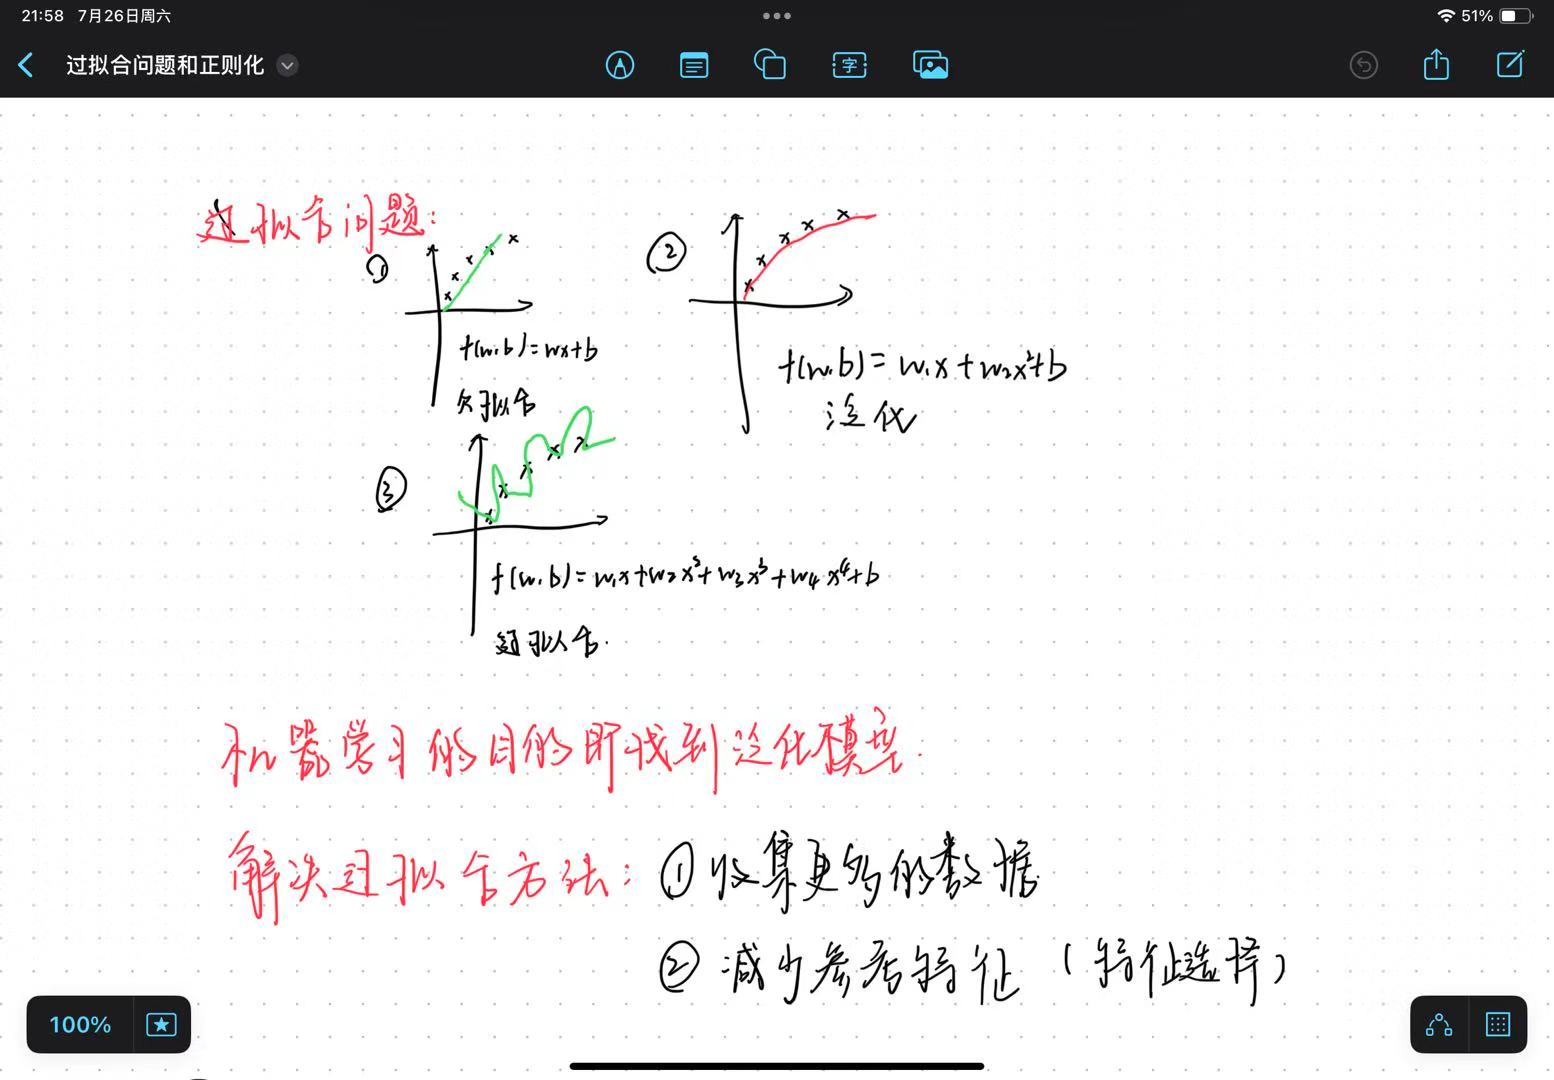 21:58 7月26日周六
51%
过拟合问题和正则化
字
过拟合问题:
①
f(w,b)=wx+b
欠拟合
②
f(w,b)=w₁x+w₂x²+b
泛化
③
f(w,b)=w₁x+w₂x²+w₃x³+w₄x⁴+b
过拟合.
机器学习的目的即找到泛化模型.
解决过拟合方法: ①收集更多的数据
②减少参考特征(特征选择)
100%